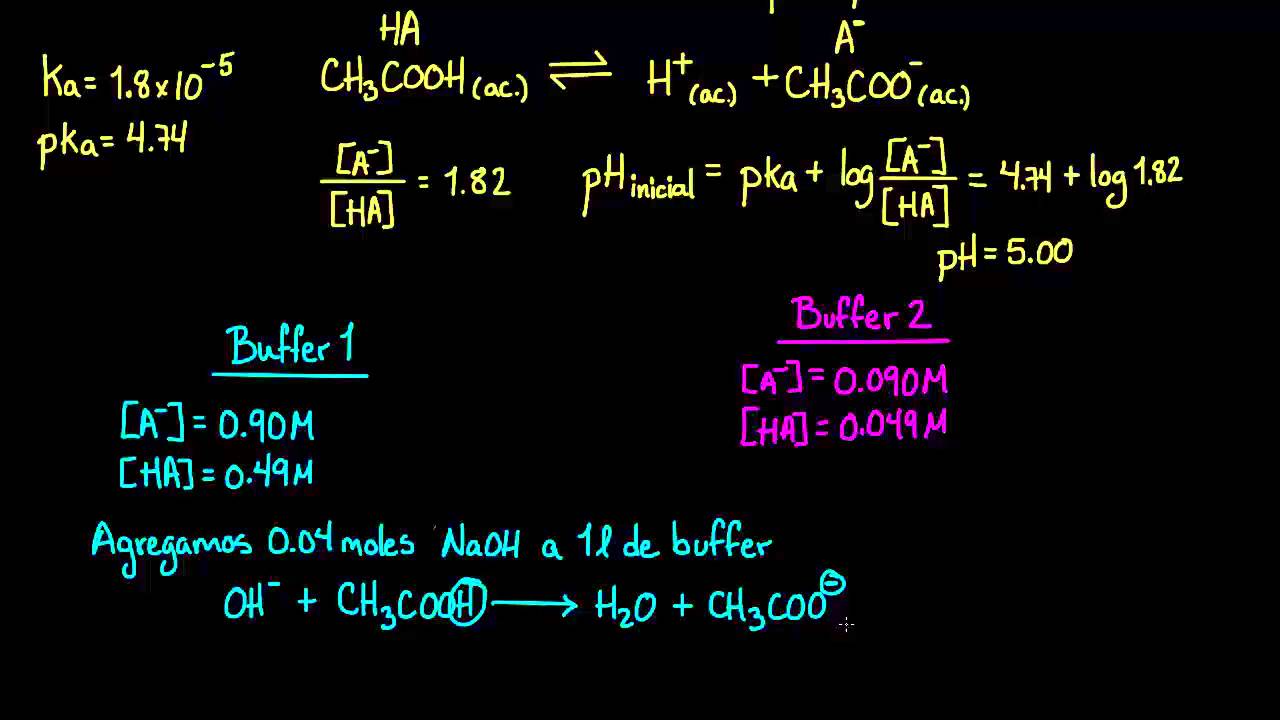 HA
A⁻
Ka = 1.8×10⁻⁵
CH₃COOH(ac.) ⇌ H⁺(ac.) + CH₃COO⁻(ac.)
pKa = 4.74
[A⁻]/[HA] = 1.82
pH inicial = pKa + log [A⁻]/[HA] = 4.74 + log 1.82
pH = 5.00
Buffer 1
[A⁻] = 0.90M
[HA] = 0.49M
Buffer 2
[A⁻] = 0.090M
[HA] = 0.049M
Agregamos 0.04 moles NaOH a 1l de buffer
OH⁻ + CH₃COOH ⟶ H₂O + CH₃COO⁻